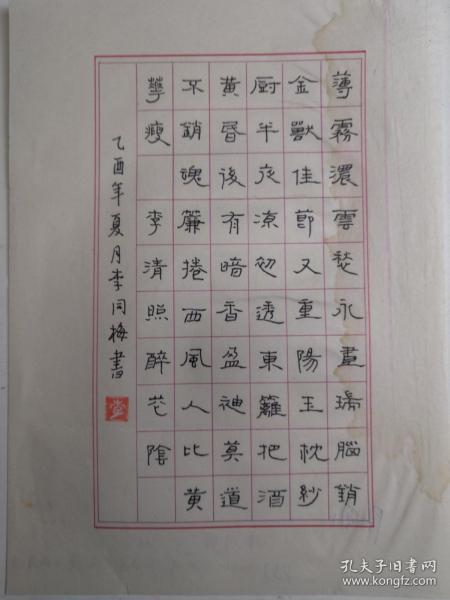 薄霧濃雲愁永晝瑞腦銷
金獸佳節又重陽玉枕紗
厨半夜涼初透東籬把酒
黃昏後有暗香盈袖莫道
不銷魂簾捲西風人比黃
華瘦 李清照醉花陰
乙酉年夏月李同梅書
李
孔夫子旧书网
www.kongfz.com